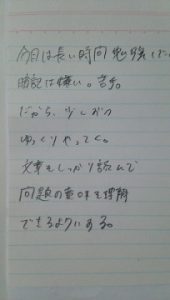 今日は長い時間勉強した
暗記は嫌い。苦手。
だから、少しずつ
ゆっくりやってく。
文章もしっかり読んで
問題の意味を理解
できるようにする。